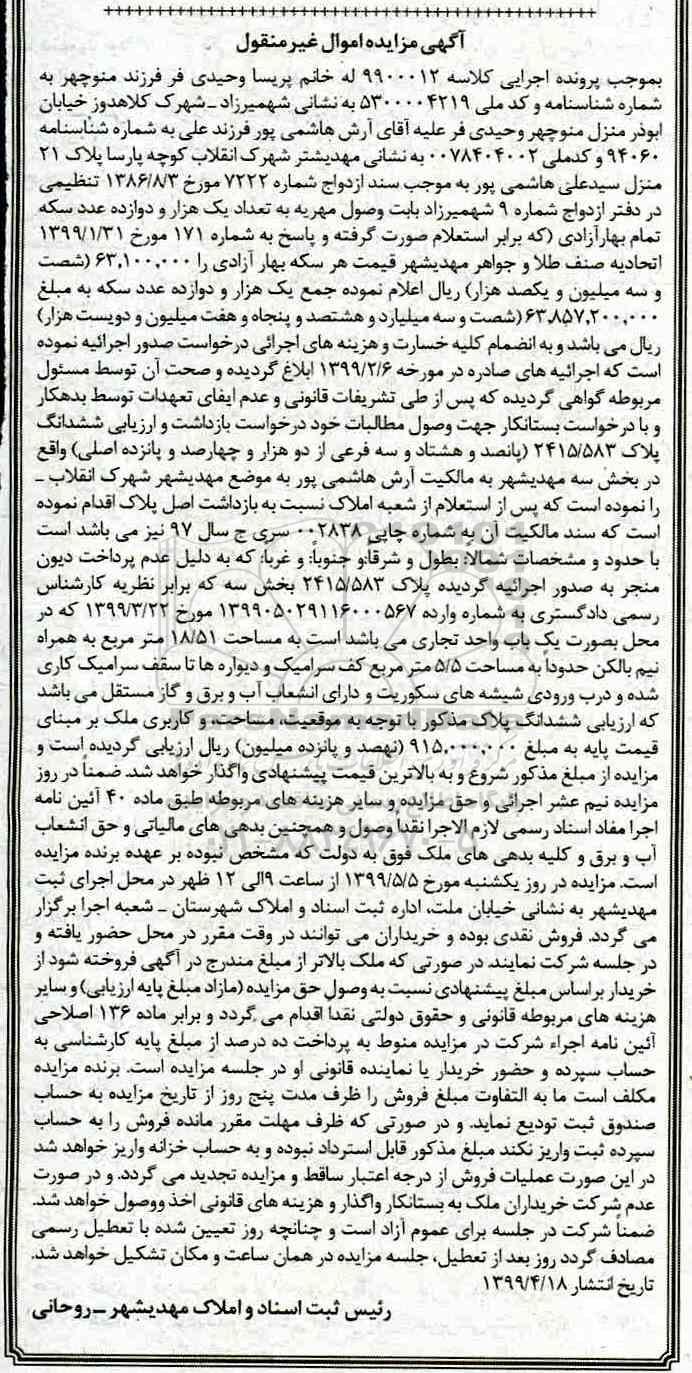 آگهی مزایده اموال غیرمنقول
بموجب پرونده اجرایی کلاسه ۹۹۰۰۰۱۲ له خانم پریسا وحیدی فر فرزند منوچهر به
شماره شناسنامه و کد ملی ۵۳۰۰۰۰۴۲۱۹ به نشانی شهمیرزاد ـ شهرک کلاهدوز خیابان
ابوذر منزل منوچهر وحیدی فر علیه آقای آرش هاشمی پور فرزند علی به شماره شناسنامه
۹۴۰۶۰ و کدملی ۰۰۷۸۴۰۴۰۰۲ به نشانی مهدیشتر شهرک انقلاب کوچه پارسا پلاک ۲۱
منزل سیدعلی هاشمی پور به موجب سند ازدواج شماره ۷۲۲۲ مورخ ۱۳۸۶/۸/۳ تنظیمی
در دفتر ازدواج شماره ۹ شهمیرزاد بابت وصول مهریه به تعداد یک هزار و دوازده عدد سکه
تمام بهارآزادی (که برابر استعلام صورت گرفته و پاسخ به شماره ۱۷۱ مورخ ۱۳۹۹/۱/۳۱
اتحادیه صنف طلا و جواهر مهدیشهر قیمت هر سکه بهار آزادی را ۶۳,۱۰۰,۰۰۰ (شصت
و سه میلیون و یکصد هزار) ریال اعلام نموده جمع یک هزار و دوازده عدد سکه به مبلغ
۶۳,۸۵۷,۲۰۰,۰۰۰ (شصت و سه میلیارد و هشتصد و پنجاه و هفت میلیون و دویست هزار)
ریال می باشد و به انضمام کلیه خسارت و هزینه های اجرائی درخواست صدور اجرائیه نموده
است که اجرائیه های صادره در مورخه ۱۳۹۹/۲/۶ ابلاغ گردیده و صحت آن توسط مسئول
مربوطه گواهی گردیده که پس از طی تشریفات قانونی و عدم ایفای تعهدات توسط بدهکار
و با درخواست بستانکار جهت وصول مطالبات خود درخواست بازداشت و ارزیابی ششدانگ
پلاک ۲۴۱۵/۵۸۳ (پانصد و هشتاد و سه فرعی از دو هزار و چهارصد و پانزده اصلی) واقع
در بخش سه مهدیشهر به مالکیت آرش هاشمی پور به موضع مهدیشهر شهرک انقلاب ـ
را نموده است که پس از استعلام از شعبه املاک نسبت به بازداشت اصل پلاک اقدام نموده
است که سند مالکیت آن به شماره چاپی ۰۰۲۸۳۸ سری ج سال ۹۷ نیز می باشد است
با حدود و مشخصات شمالاً: بطول و شرقاً:و جنوباً: و غرباً: که به دلیل عدم پرداخت دیون
منجر به صدور اجرائیه گردیده پلاک ۲۴۱۵/۵۸۳ بخش سه که برابر نظریه کارشناس
رسمی دادگستری به شماره وارده ۱۳۹۹۰۵۰۲۹۱۱۶۰۰۰۵۶۷ مورخ ۱۳۹۹/۳/۲۲ که در
محل بصورت یک باب واحد تجاری می باشد است به مساحت ۱۸/۵۱ متر مربع به همراه
نیم بالکن حدوداً به مساحت ۵/۵ متر مربع کف سرامیک و دیواره ها تا سقف سرامیک کاری
شده و درب ورودی شیشه های سکوریت و دارای انشعاب آب و برق و گاز مستقل می باشد
که ارزیابی ششدانگ پلاک مذکور با توجه به موقعیت، مساحت، و کاربری ملک بر مبنای
قیمت پایه به مبلغ ۹۱۵,۰۰۰,۰۰۰ (نهصد و پانزده میلیون) ریال ارزیابی گردیده است و
مزایده از مبلغ مذکور شروع و به بالاترین قیمت پیشنهادی واگذار خواهد شد. ضمناً در روز
مزایده نیم عشر اجرائی و حق مزایده و سایر هزینه های مربوطه طبق ماده ۴۰ آئین نامه
اجرا مفاد اسناد رسمی لازم الاجرا نقداً وصول و همچنین بدهی های مالیاتی و حق انشعاب
آب و برق و کلیه بدهی های ملک فوق به دولت که مشخص نبوده بر عهده برنده مزایده
است. مزایده در روز یکشنبه مورخ ۱۳۹۹/۵/۵ از ساعت ۹الی ۱۲ ظهر در محل اجرای ثبت
مهدیشهر به نشانی خیابان ملت، اداره ثبت اسناد و املاک شهرستان ـ شعبه اجرا برگزار
می گردد. فروش نقدی بوده و خریداران می توانند در وقت مقرر در محل حضور یافته و
در جلسه شرکت نمایند. در صورتی که ملک بالاتر از مبلغ مندرج در آگهی فروخته شود از
خریدار براساس مبلغ پیشنهادی نسبت به وصول حق مزایده (مازاد مبلغ پایه ارزیابی) و سایر
هزینه های مربوطه قانونی و حقوق دولتی نقداً اقدام می گردد و برابر ماده ۱۳۶ اصلاحی
آئین نامه اجراء شرکت در مزایده منوط به پرداخت ده درصد از مبلغ پایه کارشناسی به
حساب سپرده و حضور خریدار یا نماینده قانونی او در جلسه مزایده است. برنده مزایده
مکلف است ما به التفاوت مبلغ فروش را ظرف مدت پنج روز از تاریخ مزایده به حساب
صندوق ثبت تودیع نماید. و در صورتی که ظرف مهلت مقرر مانده فروش را به حساب
سپرده ثبت واریز نکند مبلغ مذکور قابل استرداد نبوده و به حساب خزانه واریز خواهد شد
در این صورت عملیات فروش از درجه اعتبار ساقط و مزایده تجدید می گردد. و در صورت
عدم شرکت خریداران ملک به بستانکار واگذار و هزینه های قانونی اخذ ووصول خواهد شد.
ضمناً شرکت در جلسه برای عموم آزاد است و چنانچه روز تعیین شده با تعطیل رسمی
مصادف گردد روز بعد از تعطیل، جلسه مزایده در همان ساعت و مکان تشکیل خواهد شد.
تاریخ انتشار ۱۳۹۹/۴/۱۸
رئیس ثبت اسناد و املاک مهدیشهر ـ روحانی